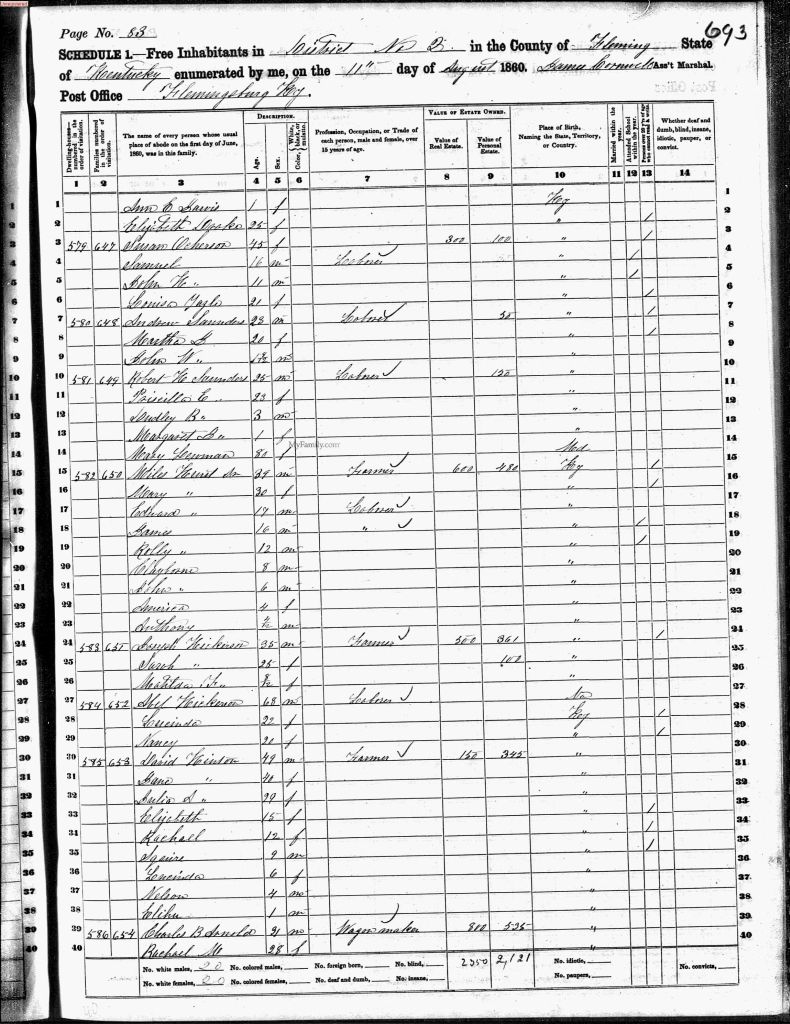 Page No. 83
693
SCHEDULE 1.—Free Inhabitants in District No 2 in the County of Fleming State
of Kentucky enumerated by me, on the 11" day of August 1860. James Ass't Marshal.
Post Office Flemingsburg Ky.
Dwelling-houses— numbered in the order of visitation.
Families numbered in the order of visitation.
The name of every person whose usual place of abode on the first day of June, 1860, was in this family.
DESCRIPTION.
Age.
Sex.
Color, White, black, or mulatto.
Profession, Occupation, or Trade of each person, male and female, over 15 years of age.
VALUE OF ESTATE OWNED.
Value of Real Estate.
Value of Personal Estate.
Place of Birth, Naming the State, Territory, or Country.
Married within the year.
Attended School within the year.
Persons over 20 y'rs of age who cannot read & write.
Whether deaf and dumb, blind, insane, idiotic, pauper, or convict.
1 2 3 4 5 6 7 8 9 10 11 12 13 14
1 Ann E 1 f Ky 1
2 Elizabeth 25 f " / 2
3 579 647 Susan 45 f 300 100 " / 3
4 Samuel 16 m Laborer " / 4
5 John H " 11 m " / 5
6 Louisa 21 f " / 6
7 580 648 Andrew Saunders 23 m Laborer 50 " / 7
8 Martha 20 f " / 8
9 John W " m " 9
10 581 649 Robert H Saunders 25 m Laborer 150 " 10
11 Priscilla E " 23 f " 11
12 Dudley B " 3 m " 12
13 Margaret " 1 f " 13
MyFamily.com
14 Mary Newman 80 f Md 14
15 582 650 Miles Hurst Sr 39 m Farmer 600 480 Ky / 15
16 Mary " 30 f " / 16
17 Edward " 17 m Laborer " 17
18 James 16 m " " / 18
19 Kelly " 12 m " / 19
20 Clayborne 8 m " 20
21 John " 6 m " 21
22 America 4 f " 22
23 Anthony m " 23
24 583 651 Joseph Hickerson 35 m Farmer 500 361 " / 24
25 Sarah " 25 f 100 " 25
26 Matilda " f " 26
27 584 652 Hickerson 68 m Laborer Va 27
28 Lucinda 22 f Ky / 28
29 Nancy 20 f " / 29
30 585 653 David Hinton 49 m Farmer 150 345 " 30
31 Jane " 40 f " 31
32 Julia A " 29 f " 32
33 Elizabeth 15 f " / 33
34 Rachael 12 f " / 34
35 Squire 9 m " / 35
36 Lucinda 6 f " 36
37 Nelson 4 m " 37
38 Elihu 1 m " 38
39 586 654 Charles B Arnold 21 m Wagon maker 800 535 " 39
40 Rachael M 28 f " 40
No. white males, 20 No. colored males, No. foreign born, No. blind, 2350 2,121 No. idiotic, No. convicts,
No. white females, 20 No. colored females, No. deaf and dumb, No. insane, No. paupers,